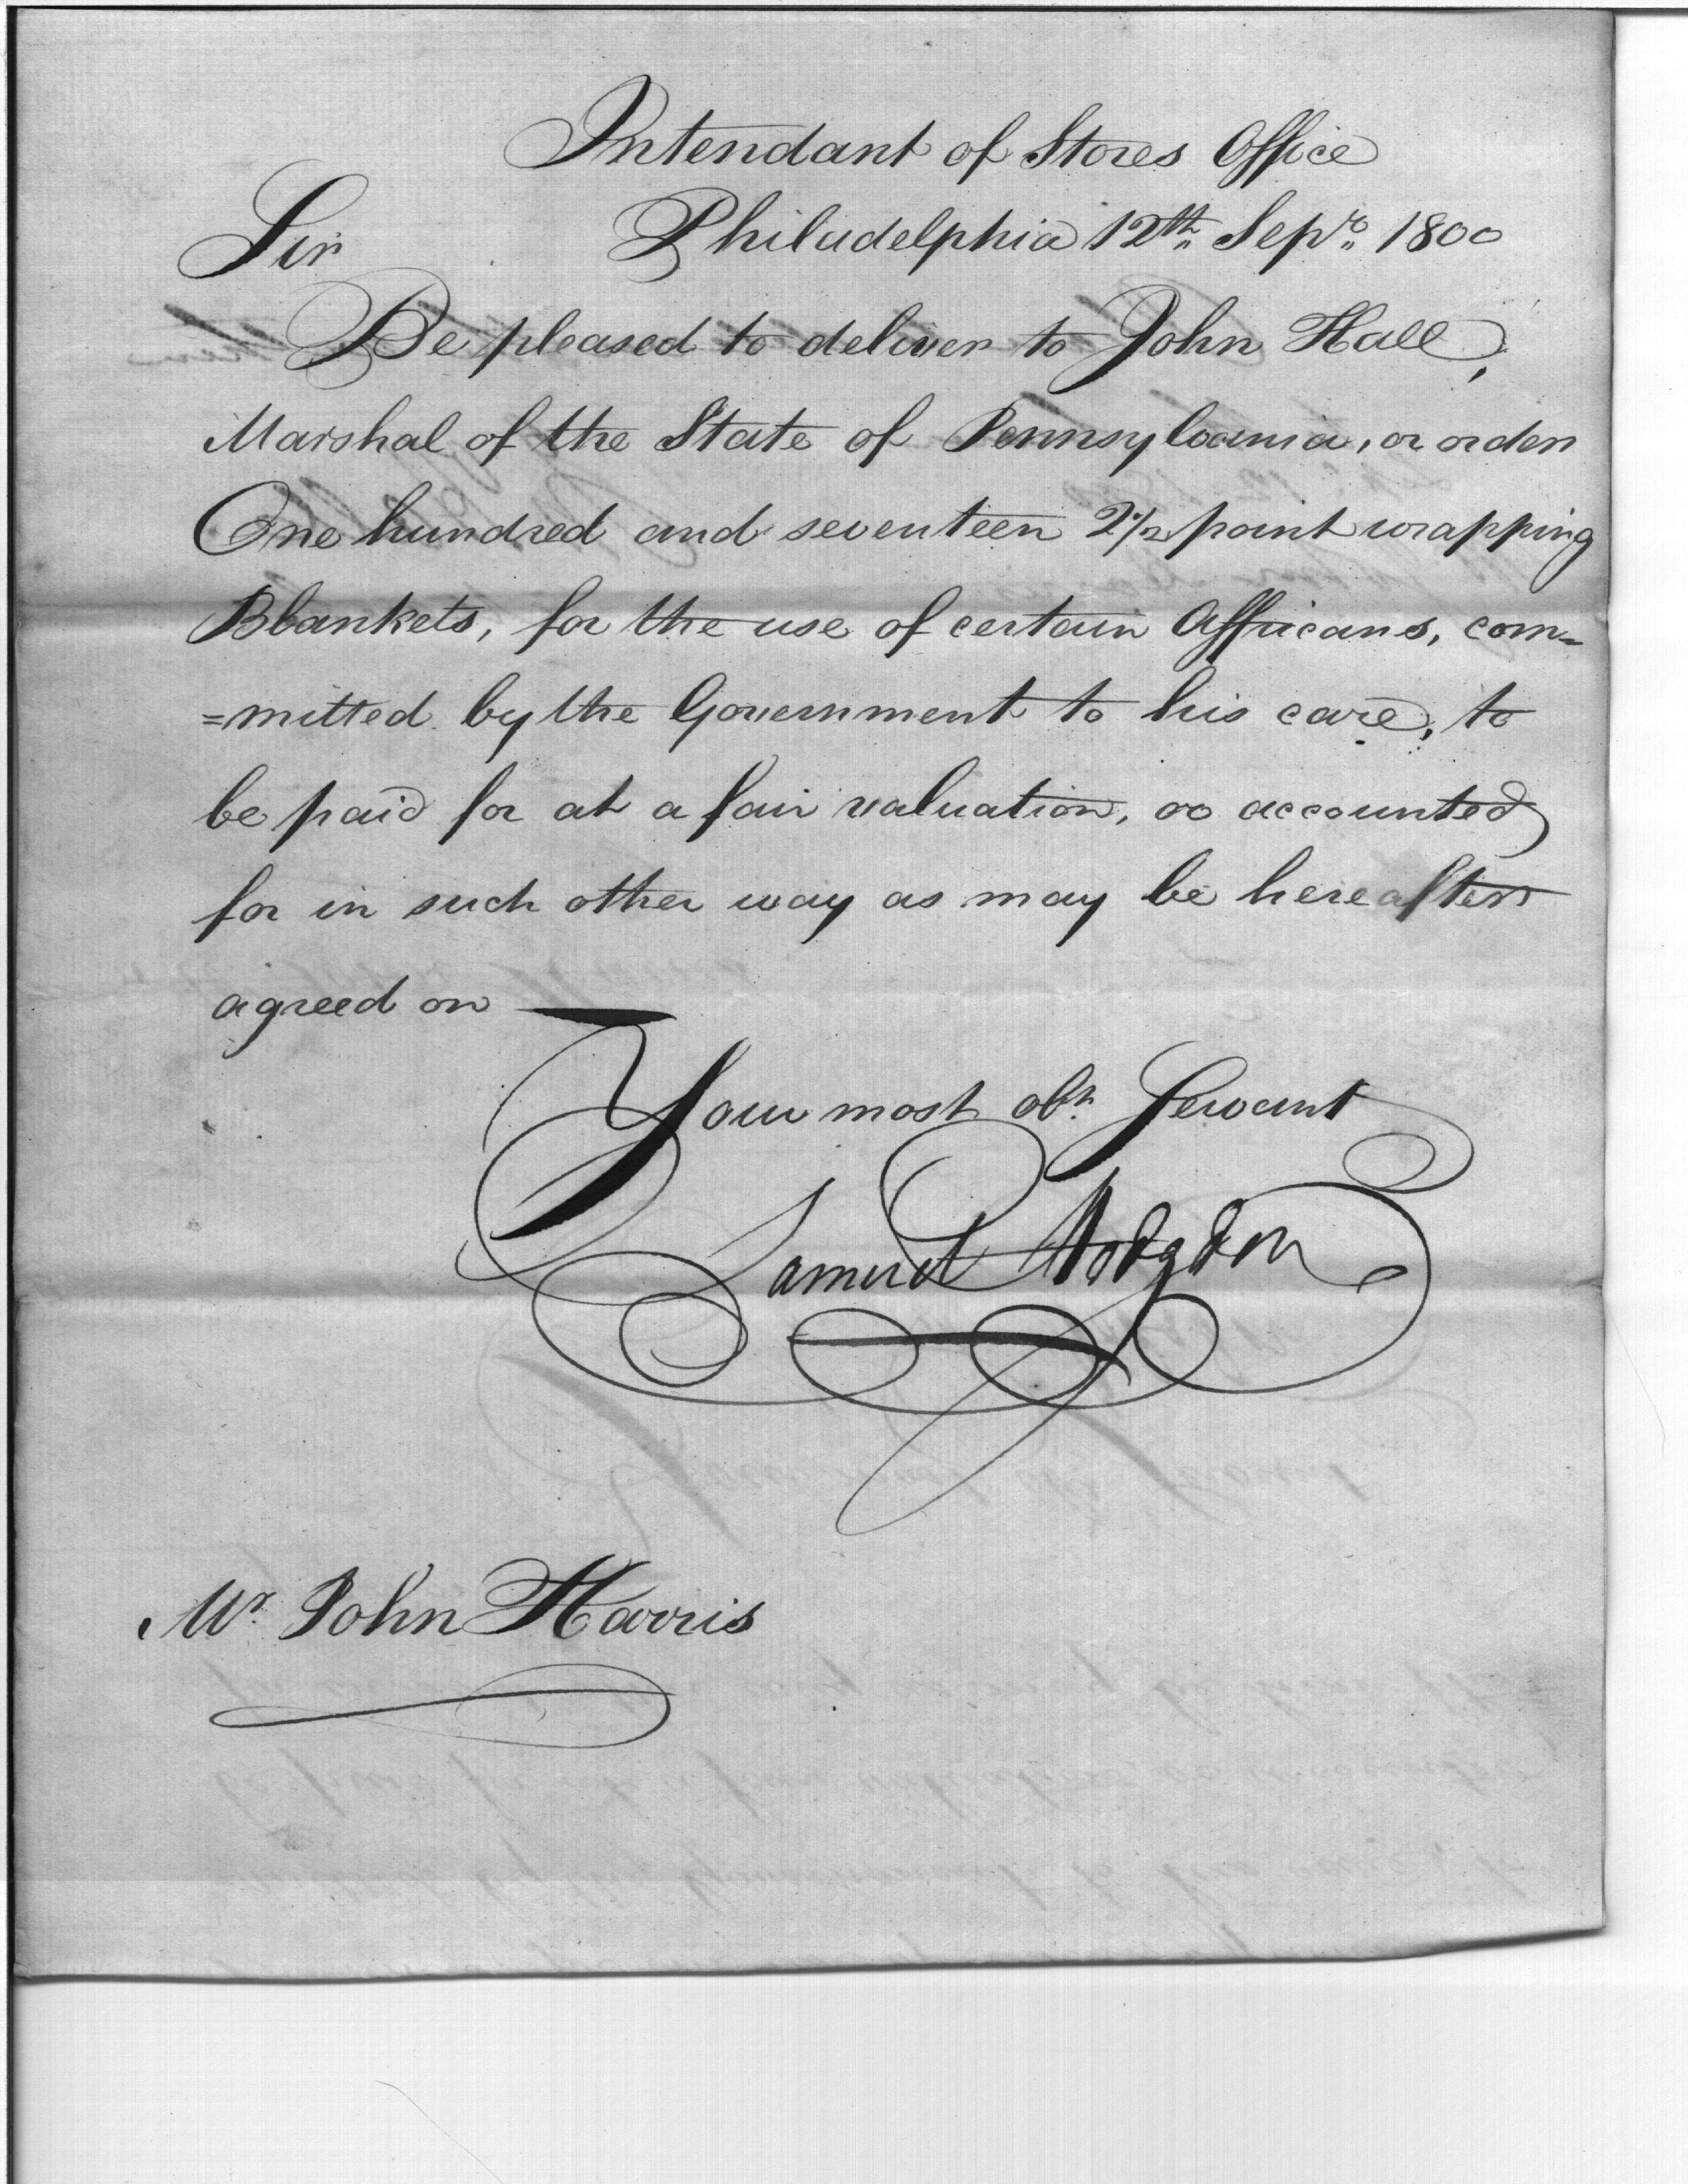 Intendant of Stores Office
Philadelphia 12th Sepr. 1800
Sir
Be pleased to deliver to John Hall,
Marshal of the State of Pennsylvania, or order
One hundred and seventeen 2 1/2 point wrapping
Blankets, for the use of certain Affricans, com=
=mitted by the Government to his care, to
be paid for at a fair valuation, or accounted
for in such other way as may be hereafter
agreed on
Your most obt. Servant
Samuel Hodgdon
Mr. John Harris